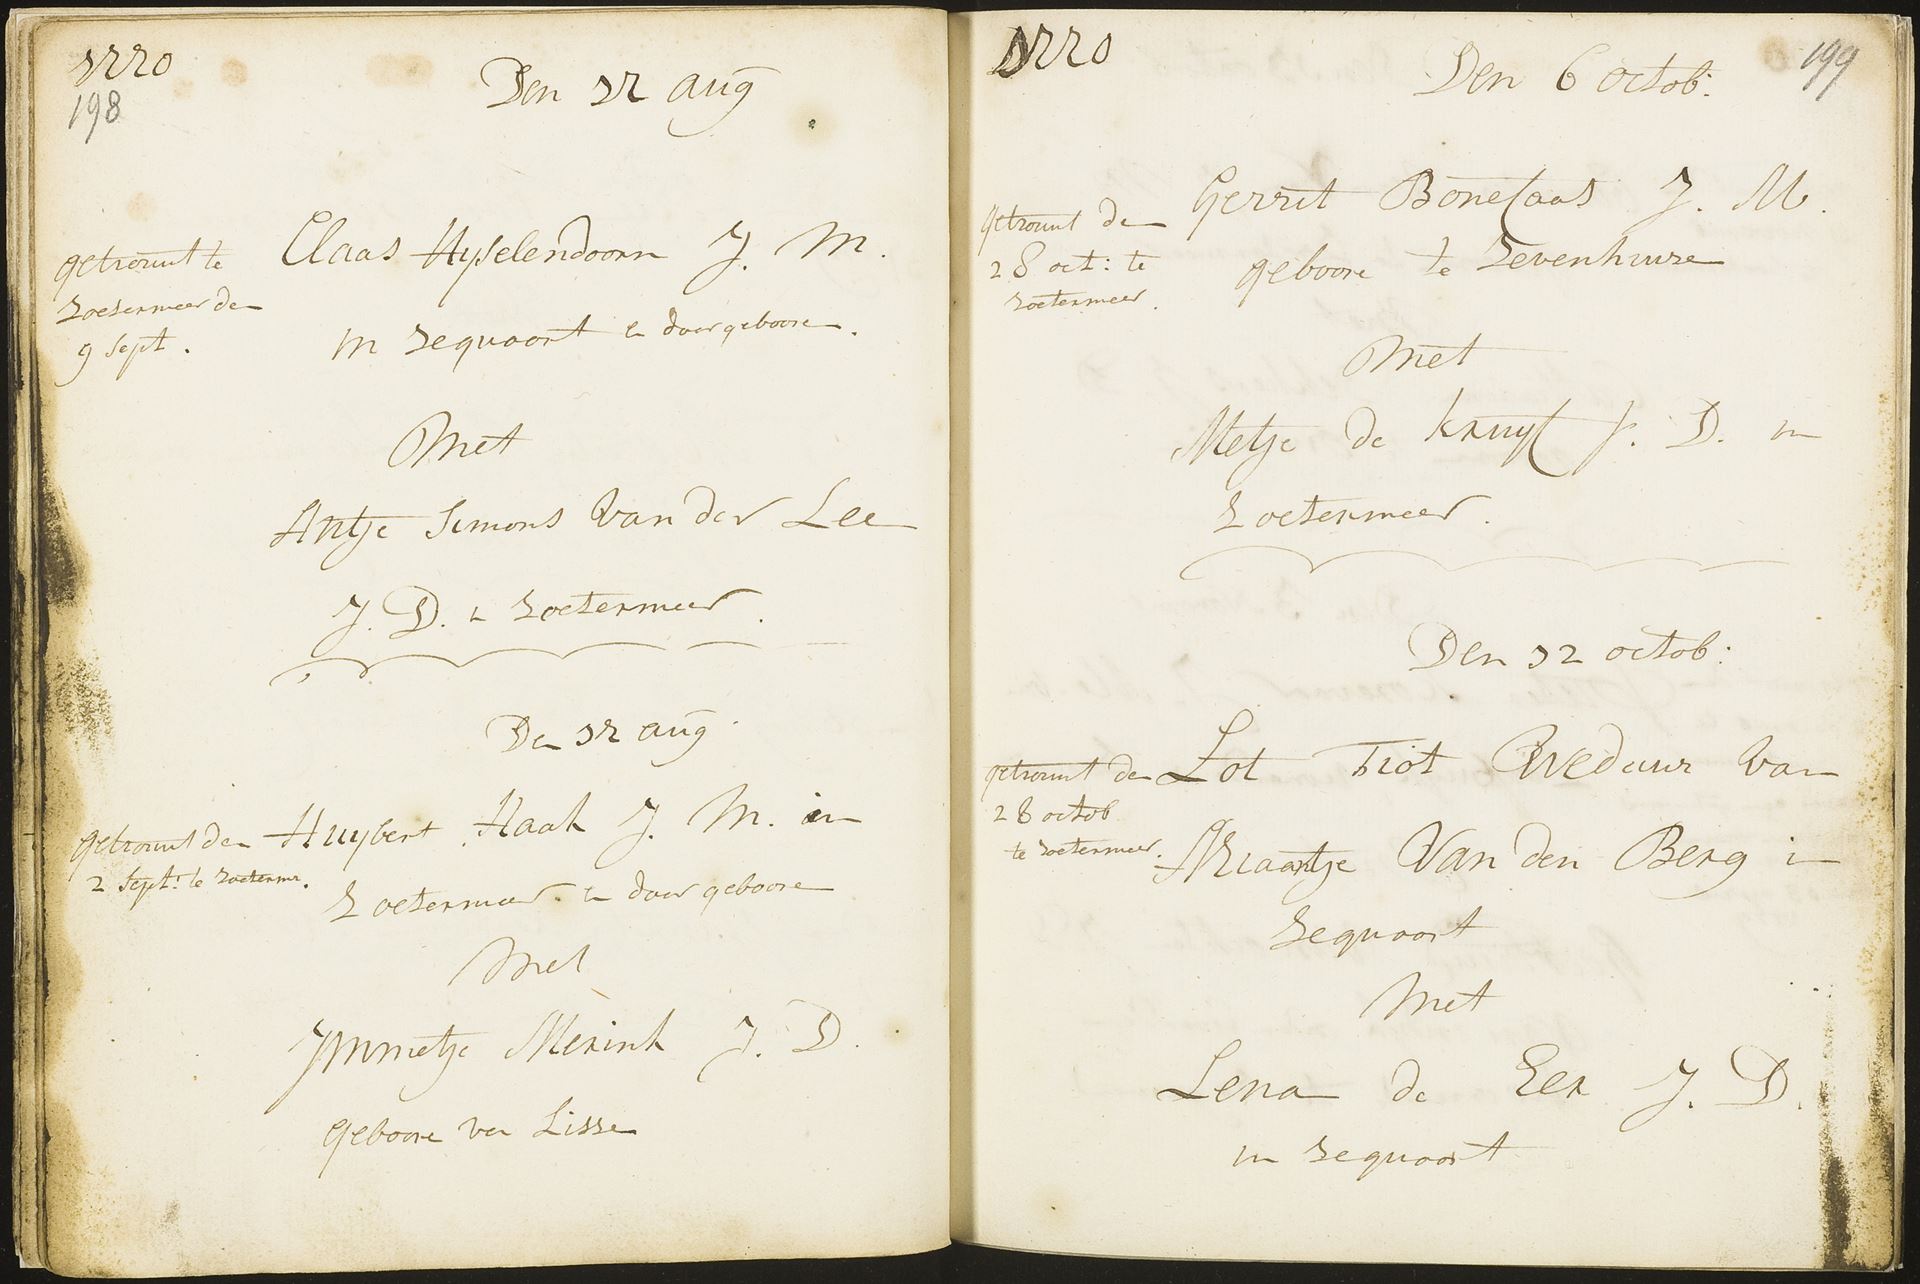 1770
198
Den 17 aug
getrouwt te
Zoetermeer den
9 Sept.
Claas Hyselendoorn J. M.
in Zegwaart en daar geboore.
Met
Antje Simons Van der Lee
J. D. in Zoetermeer.
Den 17 aug
getrouwt den
2 Sept: te Zoeterm.
Huybert Haak J. M. in
Zoetermeer en daar geboore
Met
Immetje Merink J. D.
geboore van Lisse
1770
199
Den 6 octob:
getrouwt den
28 oct: te
Zoetermeer.
Gerrit Bonefaas J. M.
geboore te Zevenhuize
Met
Metje de Kruyf J. D. in
Zoetermeer.
Den 12 octob:
getrouwt den
28 octob
te Zoetermeer.
Lot Tiot Weduur Van
Ariaantje Van den Berg in
Zegwaart
Met
Lena de Eer J. D.
in Zegwaart